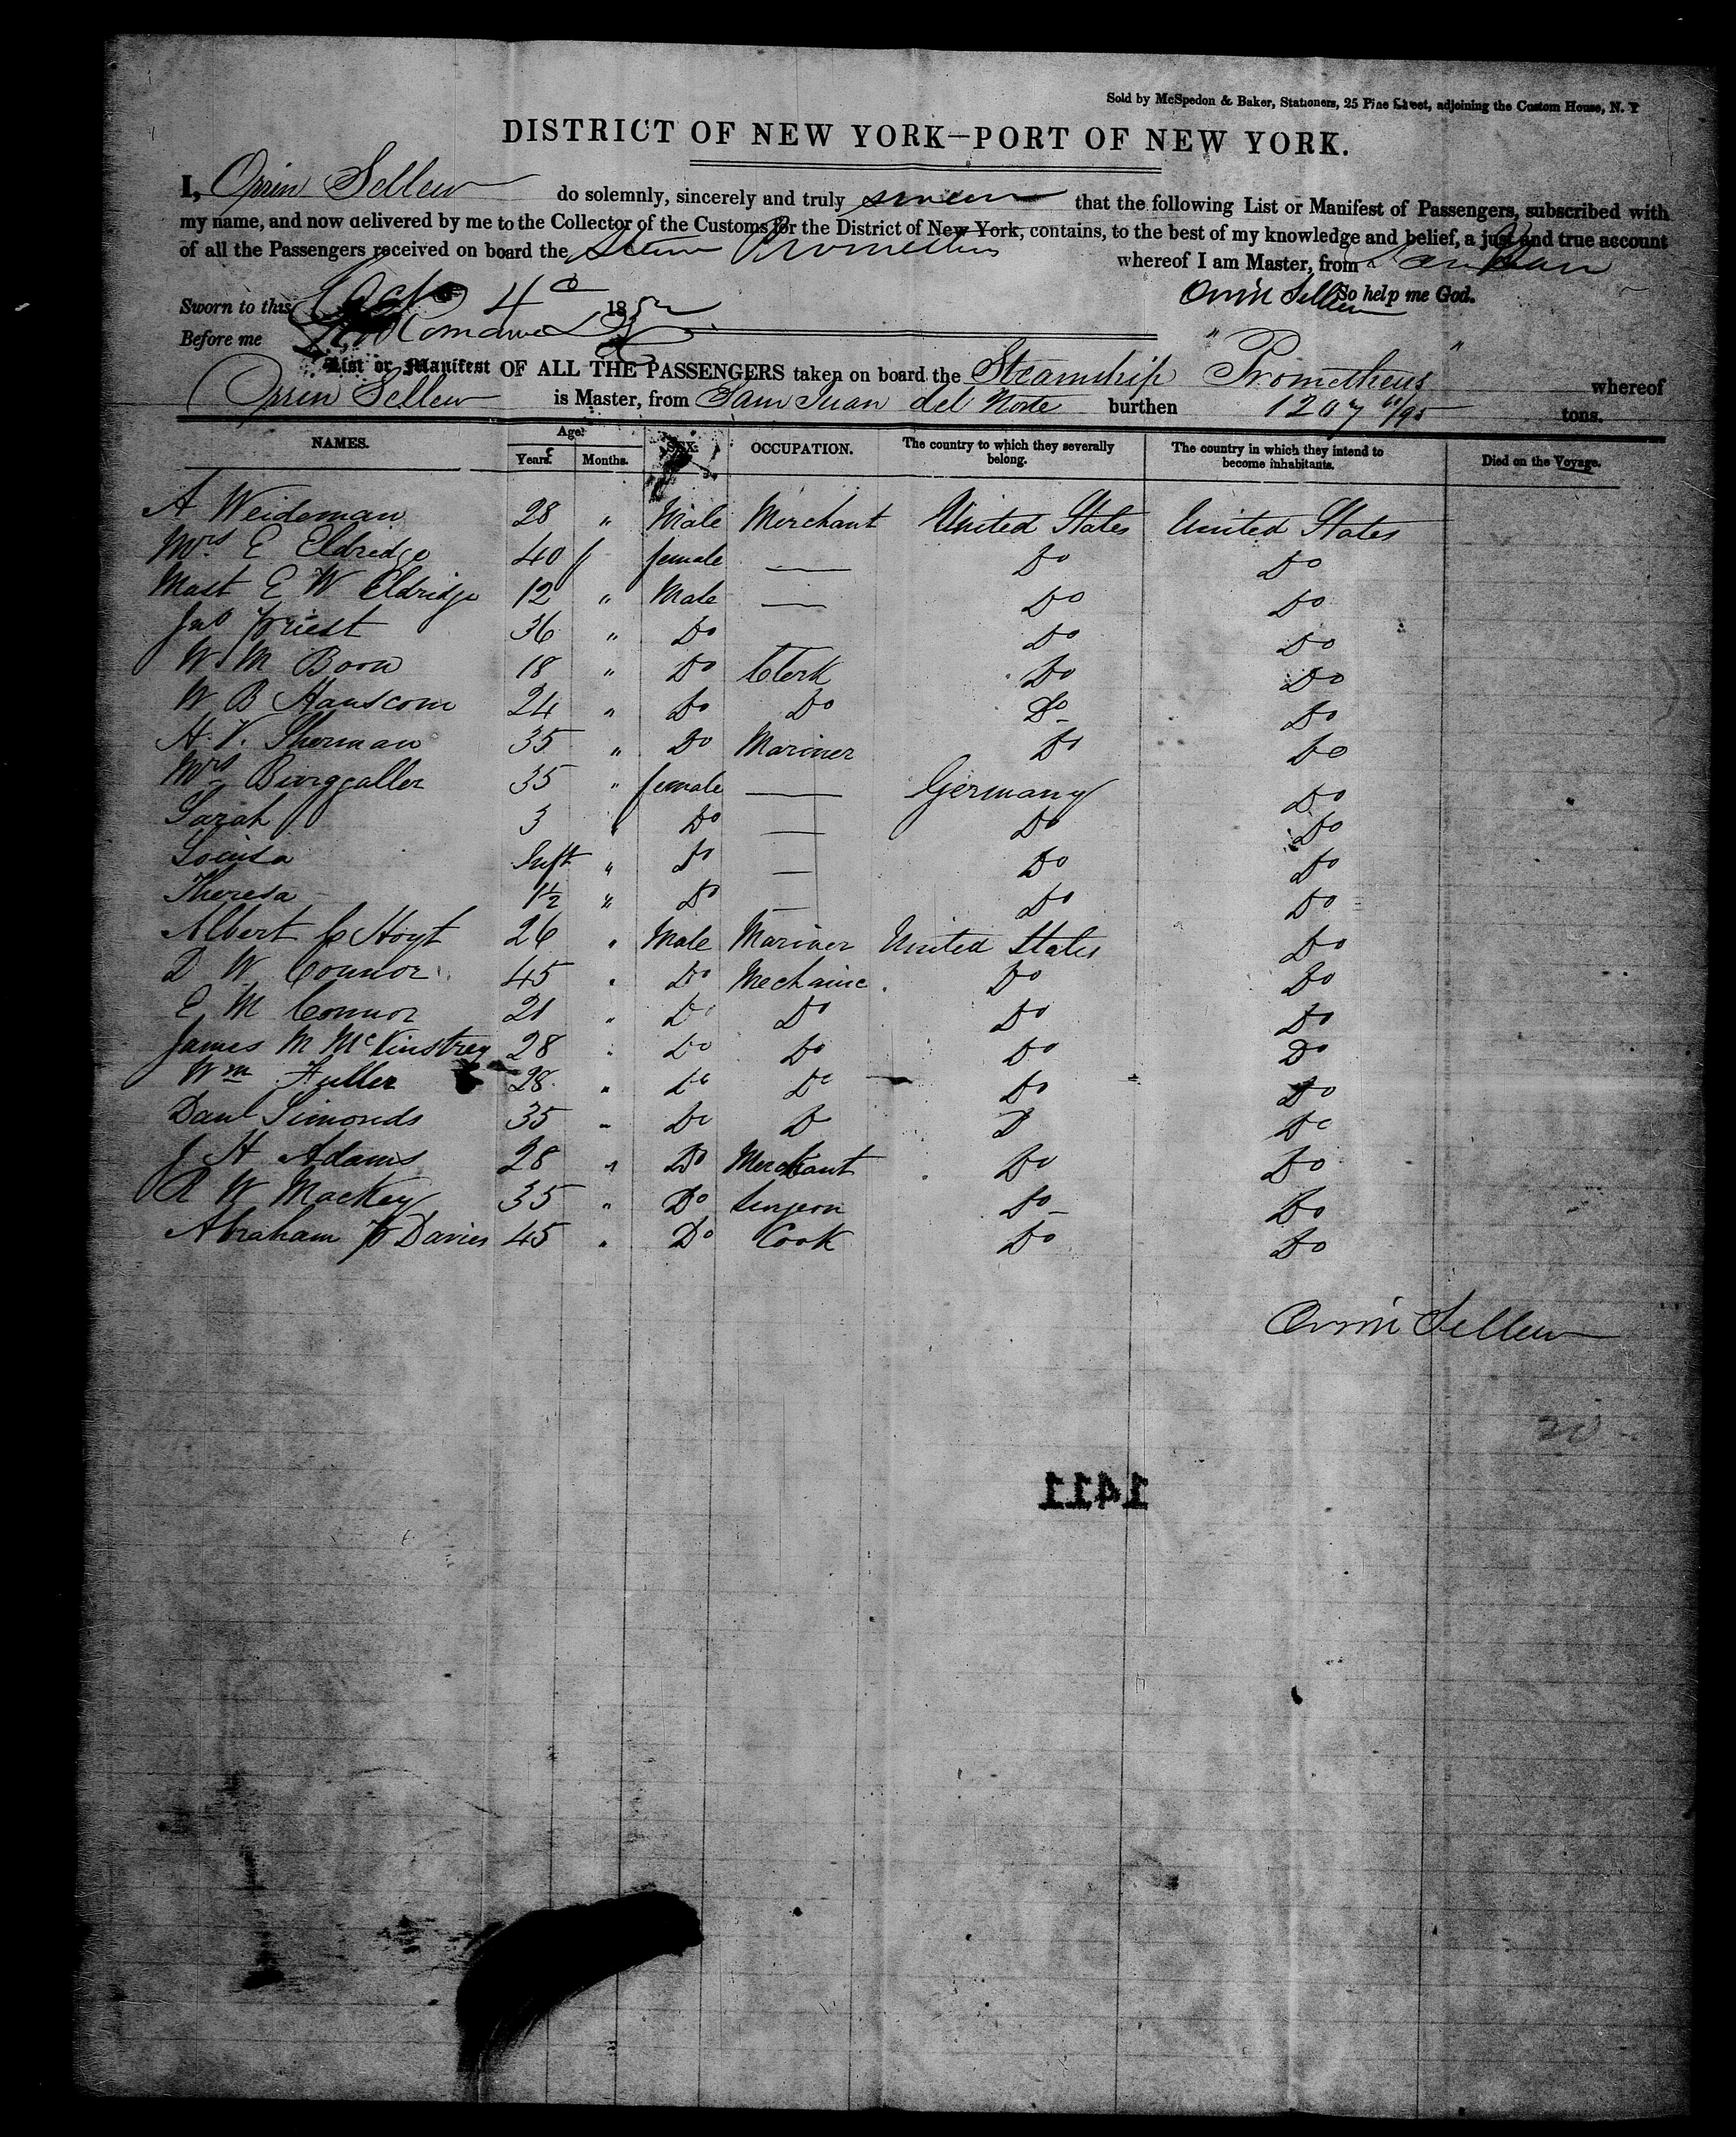 Sold by McSpedon & Baker, Stationers, 25 Pine Street, adjoining the Custom House, N. Y
DISTRICT OF NEW YORK—PORT OF NEW YORK.
I, Orrin Sellew do solemnly, sincerely and truly swear that the following List or Manifest of Passengers, subscribed with
my name, and now delivered by me to the Collector of the Customs for the District of New York, contains, to the best of my knowledge and belief, a just and true account
of all the Passengers received on board the Steamer Prometheus whereof I am Master, from San Juan
Orrin Sellew So help me God.
Sworn to this Oct 4 1852
Before me
List or Manifest OF ALL THE PASSENGERS taken on board the Steamship "Prometheus" whereof
Orrin Sellew is Master, from San Juan del Norte burthen 1207 61/95 tons.
NAMES. Age. SEX. OCCUPATION. The country to which they severally belong. The country in which they intend to become inhabitants. Died on the Voyage.
Years. Months.
A Weideman 28 " Male Merchant United States United States
Mrs E Eldredge 40 " female — Do Do
Mast E W Eldridge 12 " Male — Do Do
Jno Priest 36 " Do Do Do
W M Boon 18 " Do Clerk Do Do
W B Hanscom 24 " Do Do Do Do
H. V. Sherman 35 " Do Mariner Do Do
Mrs Burggaller 35 " female — Germany Do
Sarah 3 " Do — Do Do
Louisa Inft " Do — Do Do
Theresa 1½ " Do — Do Do
Albert C Hoyt 26 " Male Mariner United States Do
D W Connor 45 " Do Mechainc. Do Do
E M Connor 21 " Do Do Do Do
James M McKinstrey 28 " Do Do Do Do
Wm Fuller 28 " Do Do Do Do
Danl Simonds 35 " Do D D Do
J H Adams 28 " Do Merchant Do Do
R W Mackey 35 " Do Surgeon Do Do
Abraham P Davies 45 " Do Cook Do Do
Orrin Sellew
20
1411